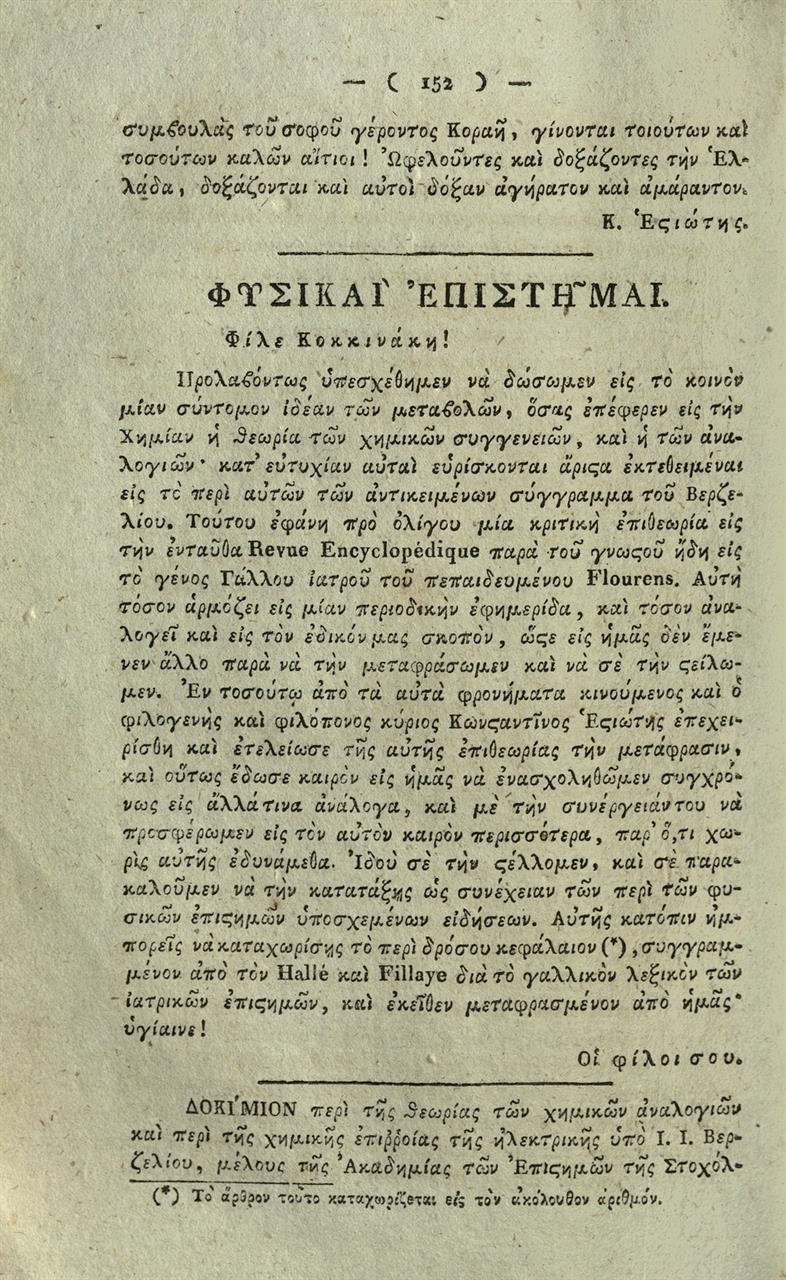 — ( 152 ) —
συμβουλὰς τοῦ σοφοῦ γέροντος Κοραῆ, γίνονται τοιούτων καὶ
τοσούτων καλῶν αἴτιοι! Ὠφελοῦντες καὶ δοξάζοντες τὴν Ἑλ-
λάδα, δοξάζονται καὶ αὐτοὶ δόξαν ἀγήρατον καὶ ἀμάραντον.
Κ. Ἑϛιώτης.
ΦΥΣΙΚΑΙ ἘΠΙΣΤΗ͂ΜΑΙ.
Φίλε Κοκκινάκη!
Προλαβόντως ὑπεσχέθημεν νὰ δώσωμεν εἰς τὸ κοινὸν
μίαν σύντομον ἰδέαν τῶν μεταβολῶν, ὅσας ἐπέφερεν εἰς τὴν
Χημίαν ἡ θεωρία τῶν χημικῶν συγγενειῶν, καὶ ἡ τῶν ἀνα-
λογιῶν· κατ' εὐτυχίαν αὐταὶ εὑρίσκονται ἄριϛα ἐκτεθειμέναι
εἰς τὸ περὶ αὐτῶν τῶν ἀντικειμένων σύγγραμμα τοῦ Βερζε-
λίου. Τούτου ἐφάνη πρὸ ὀλίγου μία κριτικὴ ἐπιθεωρία εἰς
τὴν ἐνταῦθα Revue Encyclopédique παρὰ τοῦ γνωϛοῦ ἤδη εἰς
τὸ γένος Γάλλου ἰατροῦ τοῦ πεπαιδευμένου Flourens. Αὐτὴ
τόσον ἁρμόζει εἰς μίαν περιοδικὴν ἐφημερίδα, καὶ τόσον ἀνα-
λογεῖ καὶ εἰς τὸν ἐδικόν μας σκοπὸν, ὥϛε εἰς ἡμᾶς δὲν ἔμε-
νεν ἄλλο παρὰ νὰ τὴν μεταφράσωμεν καὶ νὰ σὲ τὴν ϛείλω-
μεν. Ἐν τοσούτῳ ἀπὸ τὰ αὐτὰ φρονήματα κινούμενος καὶ ὁ
φιλογενὴς καὶ φιλόπονος κύριος Κωνϛαντῖνος Ἑϛιώτης ἐπεχει-
ρίσθη καὶ ἐτελείωσε τῆς αὐτῆς ἐπιθεωρίας τὴν μετάφρασιν,
καὶ οὕτως ἔδωσε καιρὸν εἰς ἡμᾶς νὰ ἐνασχοληθῶμεν συγχρό-
νως εἰς ἄλλάτινα ἀνάλογα, καὶ μὲ τὴν συνέργειάντου νὰ
προσφέρωμεν εἰς τὸν αὐτὸν καιρὸν περισσότερα, παρ' ὅ,τι χω-
ρὶς αὐτῆς ἐδυνάμεθα. Ἰδοὺ σὲ τὴν ϛέλλομεν, καὶ σὲ παρα-
καλοῦμεν νὰ τὴν κατατάξῃς ὡς συνέχειαν τῶν περὶ τῶν φυ-
σικῶν ἐπιϛημῶν ὑποσχεμένων εἰδήσεων. Αὐτῆς κατόπιν ἠμ-
πορεῖς νὰ καταχωρίσῃς τὸ περὶ δρόσου κεφάλαιον (*), συγγραμ-
μένον ἀπὸ τὸν Hallé καὶ Fillaye διὰ τὸ γαλλικὸν λεξικὸν τῶν
ἰατρικῶν ἐπιϛημῶν, καὶ ἐκεῖθεν μεταφρασμένον ἀπὸ ἡμᾶς·
ὑγίαινε!
Οἱ φίλοι σου.
ΔΟΚΙ΄ΜΙΟΝ περὶ τῆς θεωρίας τῶν χημικῶν ἀναλογιῶν
καὶ περὶ τῆς χημικῆς ἐπιῤῥοίας τῆς ἠλεκτρικῆς ὑπὸ Ι. Ι. Βερ-
ζελίου, μέλους τῆς Ἀκαδημίας τῶν Ἐπιϛημῶν τῆς Στοχόλ-
(*) Τὸ ἄρθρον τοῦτο καταχωρίζεται εἰς τὸν ἀκόλουθον ἀριθμόν.